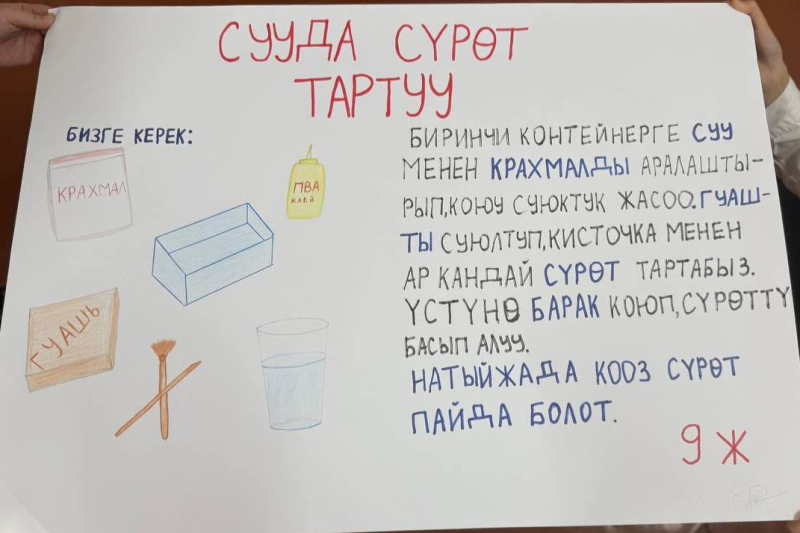 СУУДА СҮРӨТ
ТАРТУУ
БИЗГЕ КЕРЕК:
КРАХМАЛ
ПВА
КЛЕЙ
ГУАШЬ
БИРИНЧИ КОНТЕЙНЕРГЕ СУУ
МЕНЕН КРАХМАЛДЫ АРАЛАШТЫ-
РЫП,КОЮУ СУЮКТУК ЖАСОО.ГУАШ-
ТЫ СУЮЛТУП,КИСТОЧКА МЕНЕН
АР КАНДАЙ СҮРӨТ ТАРТАБЫЗ.
ҮСТҮНӨ БАРАК КОЮП,СҮРӨТТҮ
БАСЫП АЛУУ.
НАТЫЙЖАДА КООЗ СҮРӨТ
ПАЙДА БОЛОТ.
9 Ж